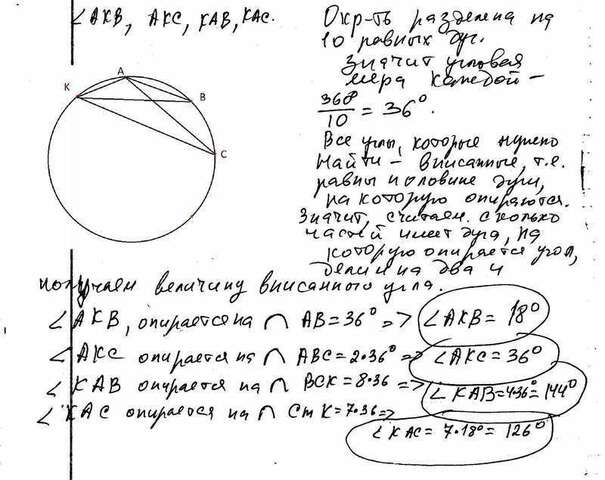 ∠АКВ, АКС, КАВ, КАС.
Окр-ть разделена на
10 равных дуг.
Значит угловая
мера каждой –
360°/10 = 36°.
Все углы, которые нужно
найти – вписанные, т.е.
равны половине дуги,
на которую опираются.
Значит, считаем сколько
частей имеет дуга, на
которую опирается угол,
делим на два и
получаем величину вписанного угла.
K
A
B
C
∠АКВ, опирается на ∩ АВ = 36° => ∠АКВ = 18°
∠АКС опирается на ∩ АВС = 2·36° => ∠АКС = 36°
∠КАВ опирается на ∩ ВСК = 8·36 => ∠КАВ = 4·36° = 144°
∠КАС опирается на ∩ СmК = 7·36 =>
∠КАС = 7·18° = 126°